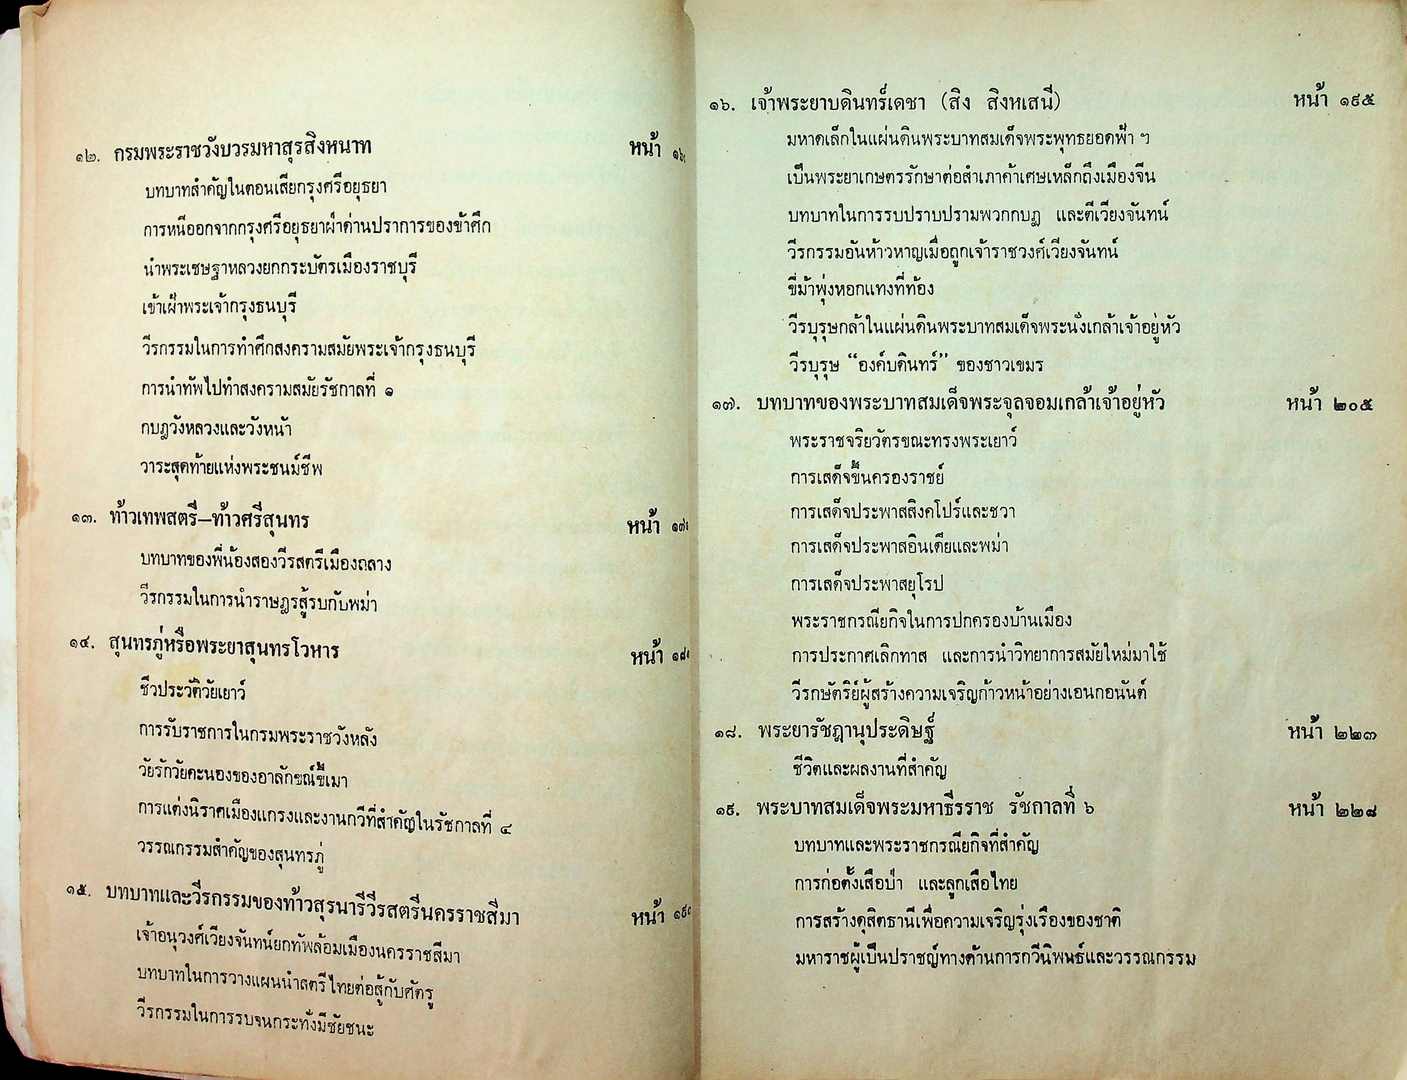 ๑๒. กรมพระราชวังบวรมหาสุรสิงหนาท หน้า
บทบาทสำคัญในตอนเสียกรุงศรีอยุธยา
การหนีออกจากกรุงศรีอยุธยาฝ่าด่านปราการของข้าศึก
นำพระเชษฐาหลวงยกกระบัตรเมืองราชบุรี
เข้าเฝ้าพระเจ้ากรุงธนบุรี
วีรกรรมในการทำศึกสงครามสมัยพระเจ้ากรุงธนบุรี
การนำทัพไปทำสงครามสมัยรัชกาลที่ ๑
กบฎวังหลวงและวังหน้า
วาระสุดท้ายแห่งพระชนม์ชีพ
๑๓. ท้าวเทพสตรี–ท้าวศรีสุนทร หน้า
บทบาทของพี่น้องสองวีรสตรีเมืองถลาง
วีรกรรมในการนำราษฎรสู้รบกับพม่า
๑๔. สุนทรภู่หรือพระยาสุนทรโวหาร หน้า
ชีวประวัติวัยเยาว์
การรับราชการในกรมพระราชวังหลัง
วัยรักวัยคะนองของอาลักษณ์ขี้เมา
การแต่งนิราศเมืองแกรงและงานกวีที่สำคัญในรัชกาลที่ ๔
วรรณกรรมสำคัญของสุนทรภู่
๑๕. บทบาทและวีรกรรมของท้าวสุรนารีวีรสตรีนครราชสีมา หน้า
เจ้าอนุวงศ์เวียงจันทน์ยกทัพล้อมเมืองนครราชสีมา
บทบาทในการวางแผนนำสตรีไทยต่อสู้กับศัตรู
วีรกรรมในการรบจนกระทั่งมีชัยชนะ
๑๖. เจ้าพระยาบดินทร์เดชา (สิง สิงหเสนี) หน้า ๑๙๕
มหาดเล็กในแผ่นดินพระบาทสมเด็จพระพุทธยอดฟ้า ฯ
เป็นพระยาเกษตรรักษาต่อสำเภาค้าเศษเหล็กถึงเมืองจีน
บทบาทในการรบปราบปรามพวกกบฏ และตีเวียงจันทน์
วีรกรรมอันห้าวหาญเมื่อถูกเจ้าราชวงศ์เวียงจันทน์
ขี่ม้าพุ่งหอกแทงที่ท้อง
วีรบุรุษกล้าในแผ่นดินพระบาทสมเด็จพระนั่งเกล้าเจ้าอยู่หัว
วีรบุรุษ “องค์บดินทร์” ของชาวเขมร
๑๗. บทบาทของพระบาทสมเด็จพระจุลจอมเกล้าเจ้าอยู่หัว หน้า ๒๐๕
พระราชจริยวัตรขณะทรงพระเยาว์
การเสด็จขึ้นครองราชย์
การเสด็จประพาสสิงคโปร์และชวา
การเสด็จประพาสอินเดียและพม่า
การเสด็จประพาสยุโรป
พระราชกรณียกิจในการปกครองบ้านเมือง
การประกาศเลิกทาส และการนำวิทยาการสมัยใหม่มาใช้
วีรกษัตริย์ผู้สร้างความเจริญก้าวหน้าอย่างเอนกอนันต์
๑๘. พระยารัชฎานุประดิษฐ์ หน้า ๒๒๓
ชีวิตและผลงานที่สำคัญ
๑๙. พระบาทสมเด็จพระมหาธีรราช รัชกาลที่ ๖ หน้า ๒๒๘
บทบาทและพระราชกรณียกิจที่สำคัญ
การก่อตั้งเสือป่า และลูกเสือไทย
การสร้างดุสิตธานีเพื่อความเจริญรุ่งเรืองของชาติ
มหาราชผู้เป็นปราชญ์ทางด้านการกวีนิพนธ์และวรรณกรรม